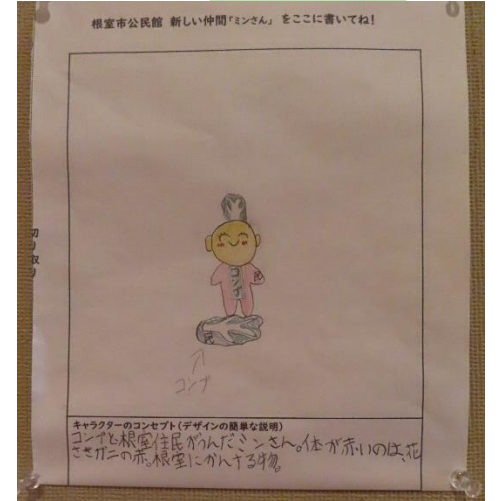 根室市公民館 新しい仲間「ミンさん」 をここに書いてね!
コンブ
民
コンブ
キャラクターのコンセプト(デザインの簡単な説明)
コンブと根室住民がうんだミンさん。体が赤いのは、花
さきガニの赤。根室にかんする物。